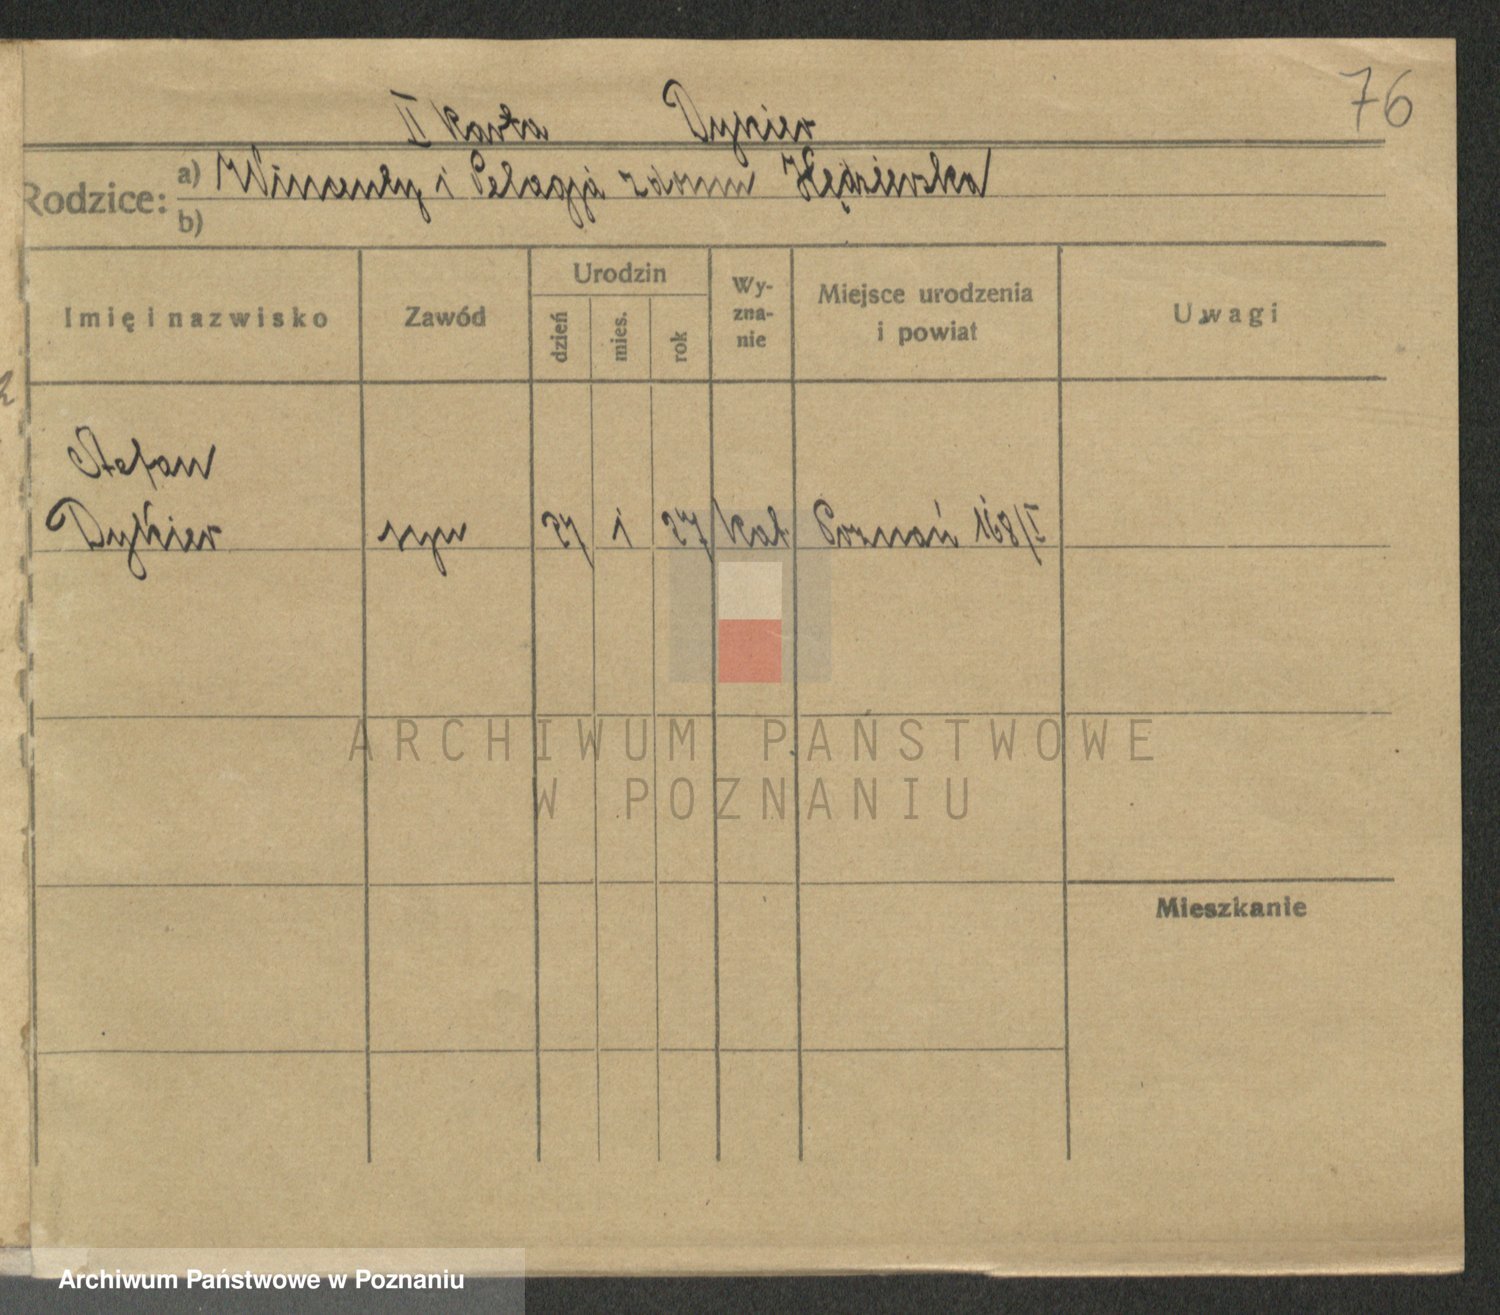 76
II karta Dykier
Rodzice: a) Wincenty i Pelagja z domu Kędzierska
b)
Imię i nazwisko Zawód Urodzin dzień mies. rok Wyznanie Miejsce urodzenia i powiat Uwagi
Stefan
Dykier syn 27 1 27 kat Poznań 168/I
ARCHIWUM PAŃSTWOWE
W POZNANIU
Mieszkanie
Archiwum Państwowe w Poznaniu